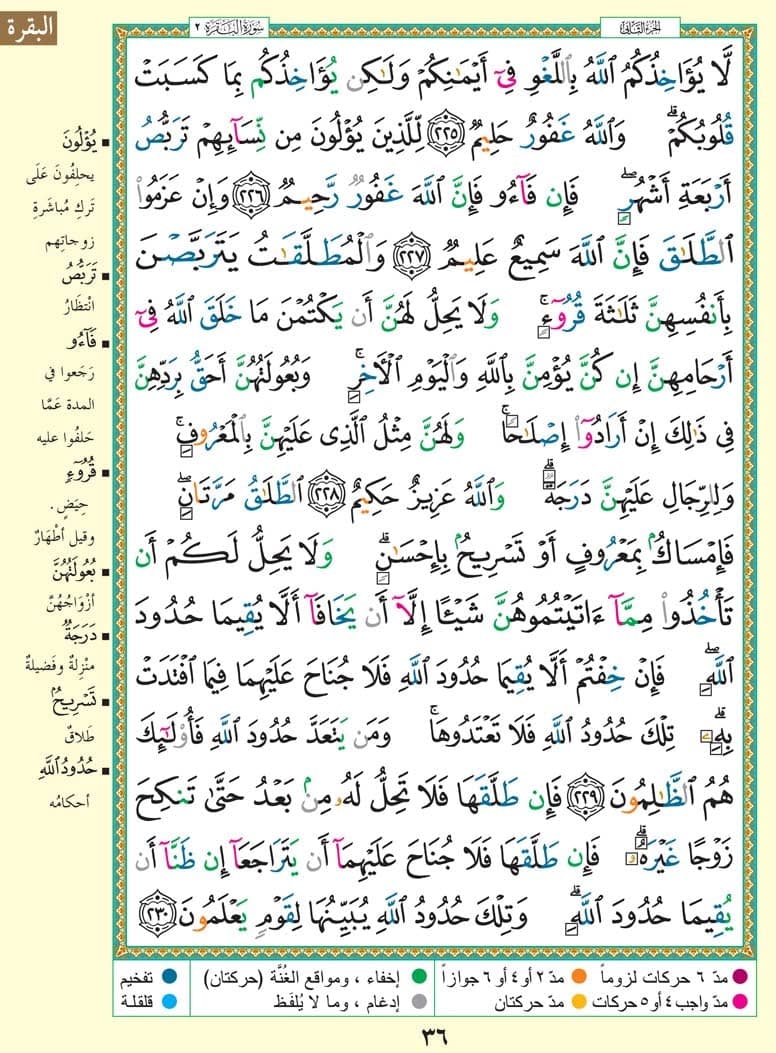 الجزء الثاني
سورة البقرة ٢
البقرة
لَّا يُؤَاخِذُكُمُ ٱللَّهُ بِٱللَّغْوِ فِىٓ أَيْمَٰنِكُمْ وَلَٰكِن يُؤَاخِذُكُم بِمَا كَسَبَتْ
قُلُوبُكُمْ ۗ وَٱللَّهُ غَفُورٌ حَلِيمٌ ٢٢٥ لِّلَّذِينَ يُؤْلُونَ مِن نِّسَآئِهِمْ تَرَبُّصُ
أَرْبَعَةِ أَشْهُرٍ ۖ فَإِن فَآءُو فَإِنَّ ٱللَّهَ غَفُورٌ رَّحِيمٌ ٢٢٦ وَإِنْ عَزَمُوا۟
ٱلطَّلَٰقَ فَإِنَّ ٱللَّهَ سَمِيعٌ عَلِيمٌ ٢٢٧ وَٱلْمُطَلَّقَٰتُ يَتَرَبَّصْنَ
بِأَنفُسِهِنَّ ثَلَٰثَةَ قُرُوٓءٍ ۚ وَلَا يَحِلُّ لَهُنَّ أَن يَكْتُمْنَ مَا خَلَقَ ٱللَّهُ فِىٓ
أَرْحَامِهِنَّ إِن كُنَّ يُؤْمِنَّ بِٱللَّهِ وَٱلْيَوْمِ ٱلْءَاخِرِ ۚ وَبُعُولَتُهُنَّ أَحَقُّ بِرَدِّهِنَّ
فِى ذَٰلِكَ إِنْ أَرَادُوٓا۟ إِصْلَٰحًا ۚ وَلَهُنَّ مِثْلُ ٱلَّذِى عَلَيْهِنَّ بِٱلْمَعْرُوفِ ۚ
وَلِلرِّجَالِ عَلَيْهِنَّ دَرَجَةٌ ۗ وَٱللَّهُ عَزِيزٌ حَكِيمٌ ٢٢٨ ٱلطَّلَٰقُ مَرَّتَانِ ۖ
فَإِمْسَاكٌۢ بِمَعْرُوفٍ أَوْ تَسْرِيحٌۢ بِإِحْسَٰنٍ ۗ وَلَا يَحِلُّ لَكُمْ أَن
تَأْخُذُوا۟ مِمَّآ ءَاتَيْتُمُوهُنَّ شَيْـًٔا إِلَّآ أَن يَخَافَآ أَلَّا يُقِيمَا حُدُودَ
ٱللَّهِ ۖ فَإِنْ خِفْتُمْ أَلَّا يُقِيمَا حُدُودَ ٱللَّهِ فَلَا جُنَاحَ عَلَيْهِمَا فِيمَا ٱفْتَدَتْ
بِهِۦ ۗ تِلْكَ حُدُودُ ٱللَّهِ فَلَا تَعْتَدُوهَا ۚ وَمَن يَتَعَدَّ حُدُودَ ٱللَّهِ فَأُو۟لَٰٓئِكَ
هُمُ ٱلظَّٰلِمُونَ ٢٢٩ فَإِن طَلَّقَهَا فَلَا تَحِلُّ لَهُۥ مِنۢ بَعْدُ حَتَّىٰ تَنكِحَ
زَوْجًا غَيْرَهُۥ ۗ فَإِن طَلَّقَهَا فَلَا جُنَاحَ عَلَيْهِمَآ أَن يَتَرَاجَعَآ إِن ظَنَّآ أَن
يُقِيمَا حُدُودَ ٱللَّهِ ۗ وَتِلْكَ حُدُودُ ٱللَّهِ يُبَيِّنُهَا لِقَوْمٍ يَعْلَمُونَ ٢٣٠
يُؤْلُونَ
يحلِفُونَ عَلَى
تَركِ مُباشَرةِ
زوجاتِهم
تَرَبُّصُ
انْتظَارُ
فَآءُو
رَجَعوا في
المدة عَمَّا
حَلفُوا عليه
قُرُوٓءٍ
حِيَضٍ.
وقيل أطْهَارٌ
بُعُولَتُهُنَّ
أزْوَاجُهُنَّ
دَرَجَةٌ
منْزِلةٌ وفَضيلةٌ
تَسْرِيحٌۢ
طَلاقٌ
حُدُودُ ٱللَّهِ
أحكامُه
مدّ ٦ حركات لزوماً مدّ ٢ أو ٤ أو ٦ جوازاً إخفاء ، ومواقع الغُنَّة (حركتان) تفخيم
مدّ واجب ٤ أو ٥ حركات مدّ حركتان إدغام ، وما لا يُلفَظ قلقلة
٣٦